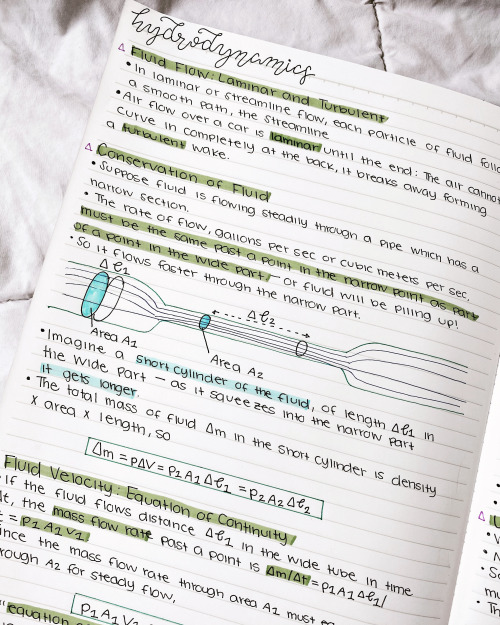 hydrodynamics
△ Fluid Flow: Laminar and Turbulent
• In laminar or streamline flow, each particle of fluid
a smooth path, the streamline
• Air flow over a car is laminar until the end: The air cannot
curve in completely at the back, it breaks away forming
a turbulent wake.
△ Conservation of Fluid
• Suppose fluid is flowing steadily through a pipe which has a
narrow section.
• The rate of flow, gallons per sec or cubic meters per sec,
must be the same past a point in the narrow point as past
of a point in the wide part – or fluid will be piling up!
• So it flows faster through the narrow part.
Δℓ1
Δℓ2
Area A1
Area A2
• Imagine a short cylinder of the fluid, of length Δℓ1 in
the wide part – as it squeezes into the narrow part
it gets longer.
• The total mass of fluid Δm in the short cylinder is density
x area x length, so
Δm = pΔV = p1A1Δℓ1 = p2A2Δℓ2
Fluid Velocity: Equation of Continuity
If the fluid flows distance Δℓ1 in the wide tube in time
the mass flow rate past a point is Δm/Δt = p1A1Δℓ1/
= p1A1V1
the mass flow rate through area A1 must
A2 for steady flow,
p1A1V1
equation of